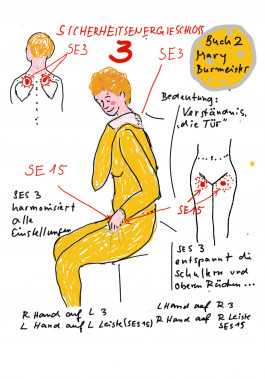 SICHERHEITSENERGIESCHLOSS
3
SE3
SE3
Buch 2
Mary
Burmeister
Bedeutung:
Verständnis,
"die Tür"
SE 15
SE15
SES 3
harmonisiert
alle
Einstellungen
SES 3
entspannt die
Schultern und
oberen Rücken...
R Hand auf L 3
L Hand auf L Leiste (SES 15)
L Hand auf R 3
R Hand auf R Leiste
SES 15